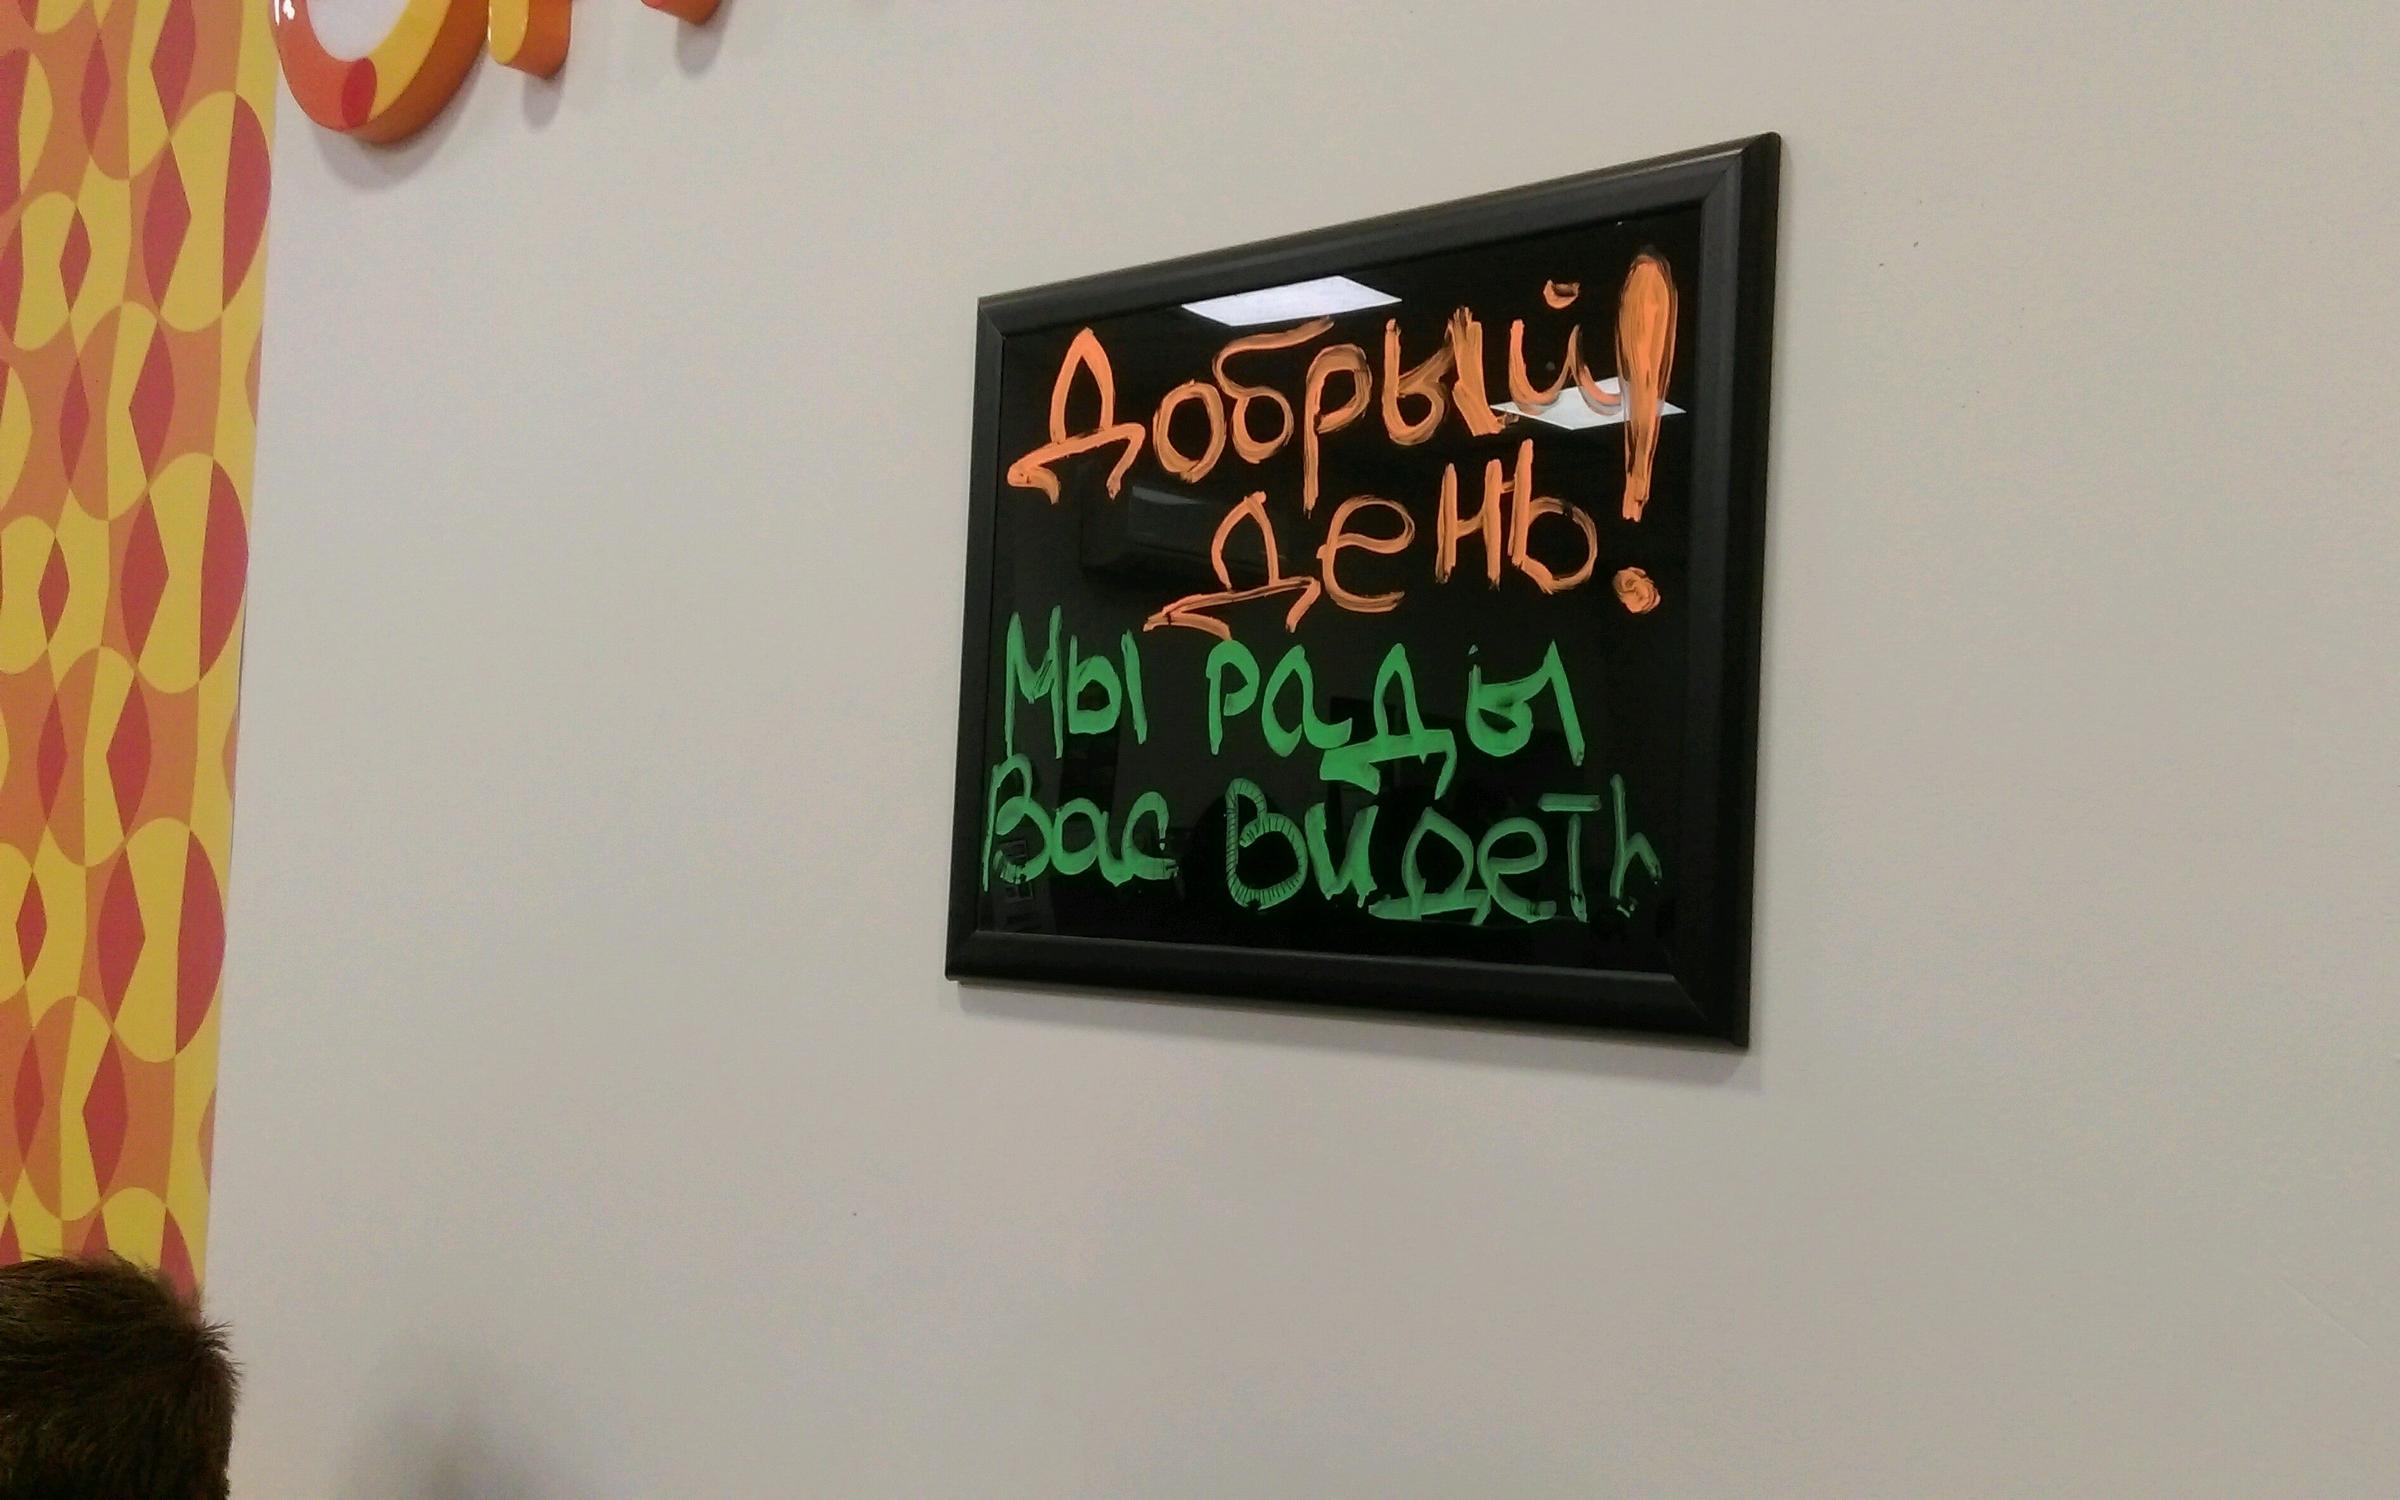 Добрый
день!
Мы рады
Вас видеть